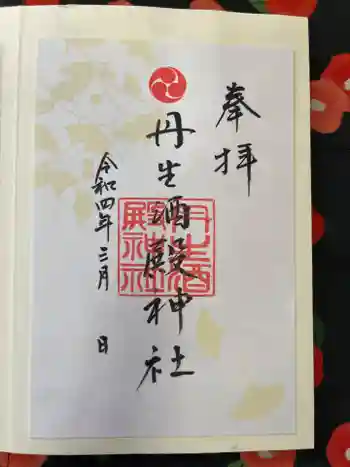 奉拝
丹生酒殿神社
丹生酒殿神社
令和四年三月 日